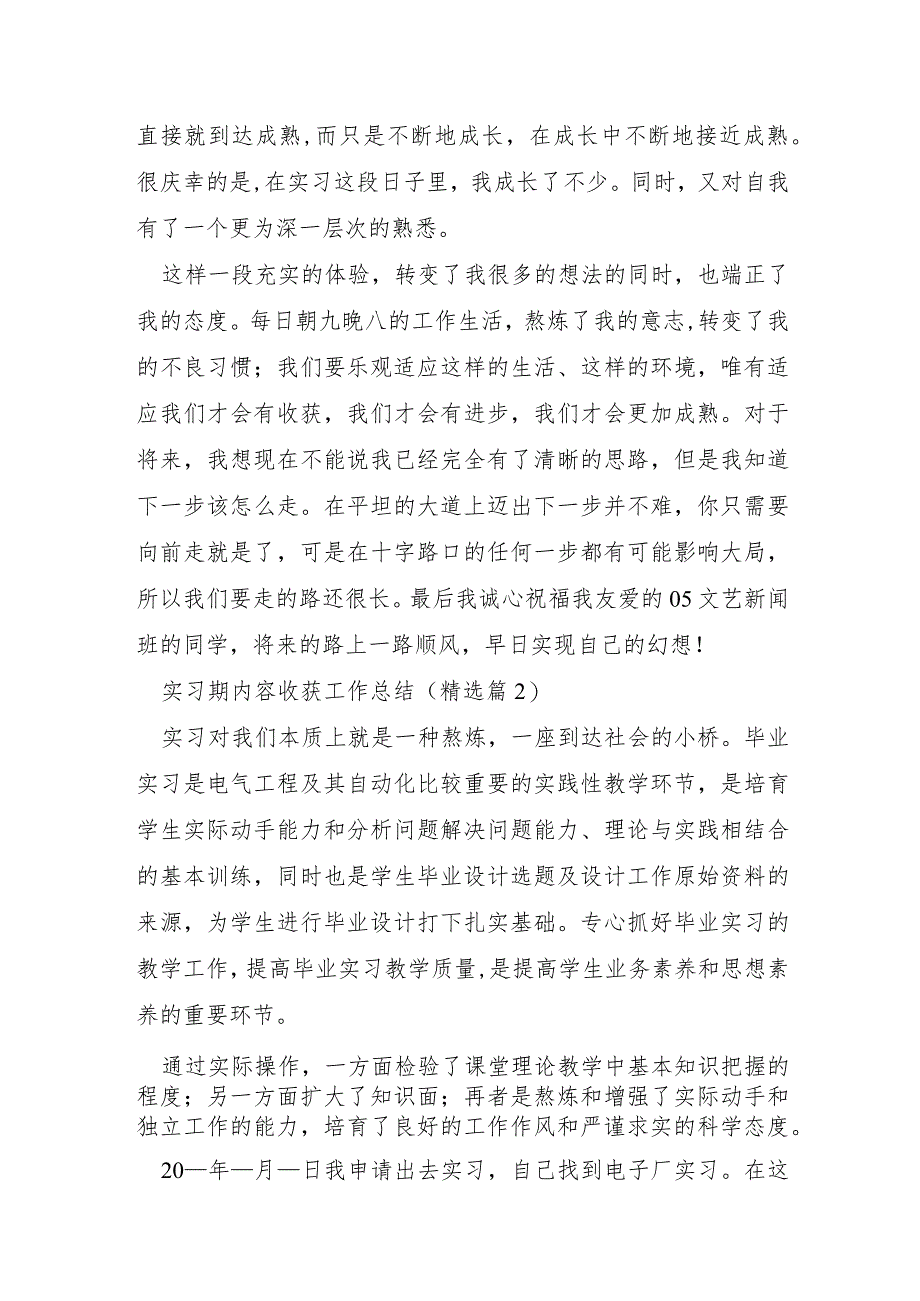 直接就到达成熟,而只是不断地成长，在成长中不断地接近成熟。
很庆幸的是,在实习这段日子里，我成长了不少。同时，又对自我
有了一个更为深一层次的熟悉。
这样一段充实的体验，转变了我很多的想法的同时，也端正了
我的态度。每日朝九晚八的工作生活，熬炼了我的意志,转变了我
的不良习惯；我们要乐观适应这样的生活、这样的环境，唯有适
应我们才会有收获，我们才会有进步，我们才会更加成熟。对于
将来，我想现在不能说我已经完全有了清晰的思路，但是我知道
下一步该怎么走。在平坦的大道上迈出下一步并不难，你只需要
向前走就是了，可是在十字路口的任何一步都有可能影响大局，
所以我们要走的路还很长。最后我诚心祝福我友爱的05文艺新闻
班的同学，将来的路上一路顺风，早日实现自己的幻想！
实习期内容收获工作总结（精选篇2）
实习对我们本质上就是一种熬炼，一座到达社会的小桥。毕业
实习是电气工程及其自动化比较重要的实践性教学环节，是培育
学生实际动手能力和分析问题解决问题能力、理论与实践相结合
的基本训练，同时也是学生毕业设计选题及设计工作原始资料的
来源，为学生进行毕业设计打下扎实基础。专心抓好毕业实习的
教学工作,提高毕业实习教学质量,是提高学生业务素养和思想素
养的重要环节。
通过实际操作，一方面检验了课堂理论教学中基本知识把握的
程度；另一方面扩大了知识面；再者是熬炼和增强了实际动手和
独立工作的能力，培育了良好的工作作风和严谨求实的科学态度。
20—年—月—日我申请出去实习，自己找到电子厂实习。在这